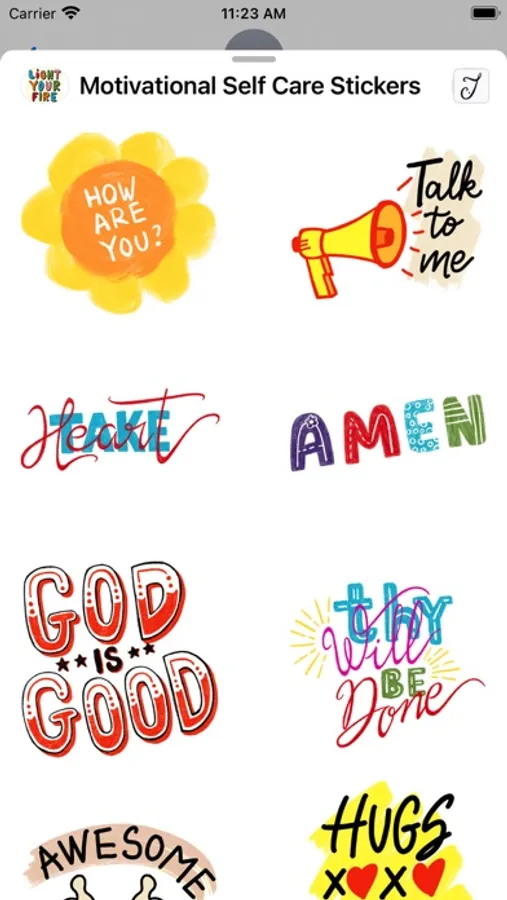 Carrier 11:23 AM
LIGHT
YOUR
FIRE
Motivational Self Care Stickers
HOW
ARE
YOU?
Talk
to
me
TAKE
Heart
AMEN
GOD
IS
GOOD
thy
Will
BE
Done
AWESOME
HUGS
X X